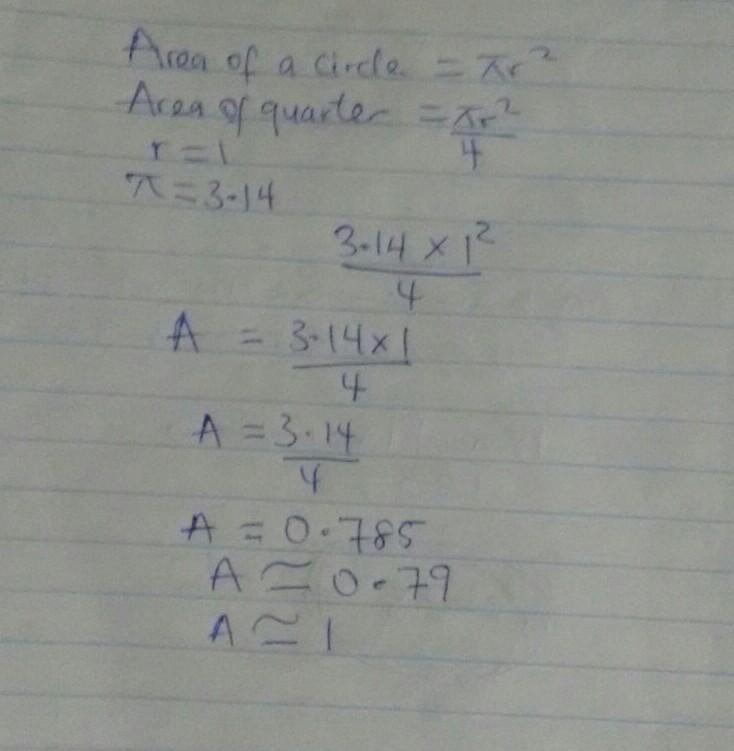 Area of a circle = πr²
Area of quarter = πr²/4
r = 1
π = 3.14
3.14 × 1²/4
A = 3.14 × 1/4
A = 3.14/4
A = 0.785
A ≃ 0.79
A ≃ 1